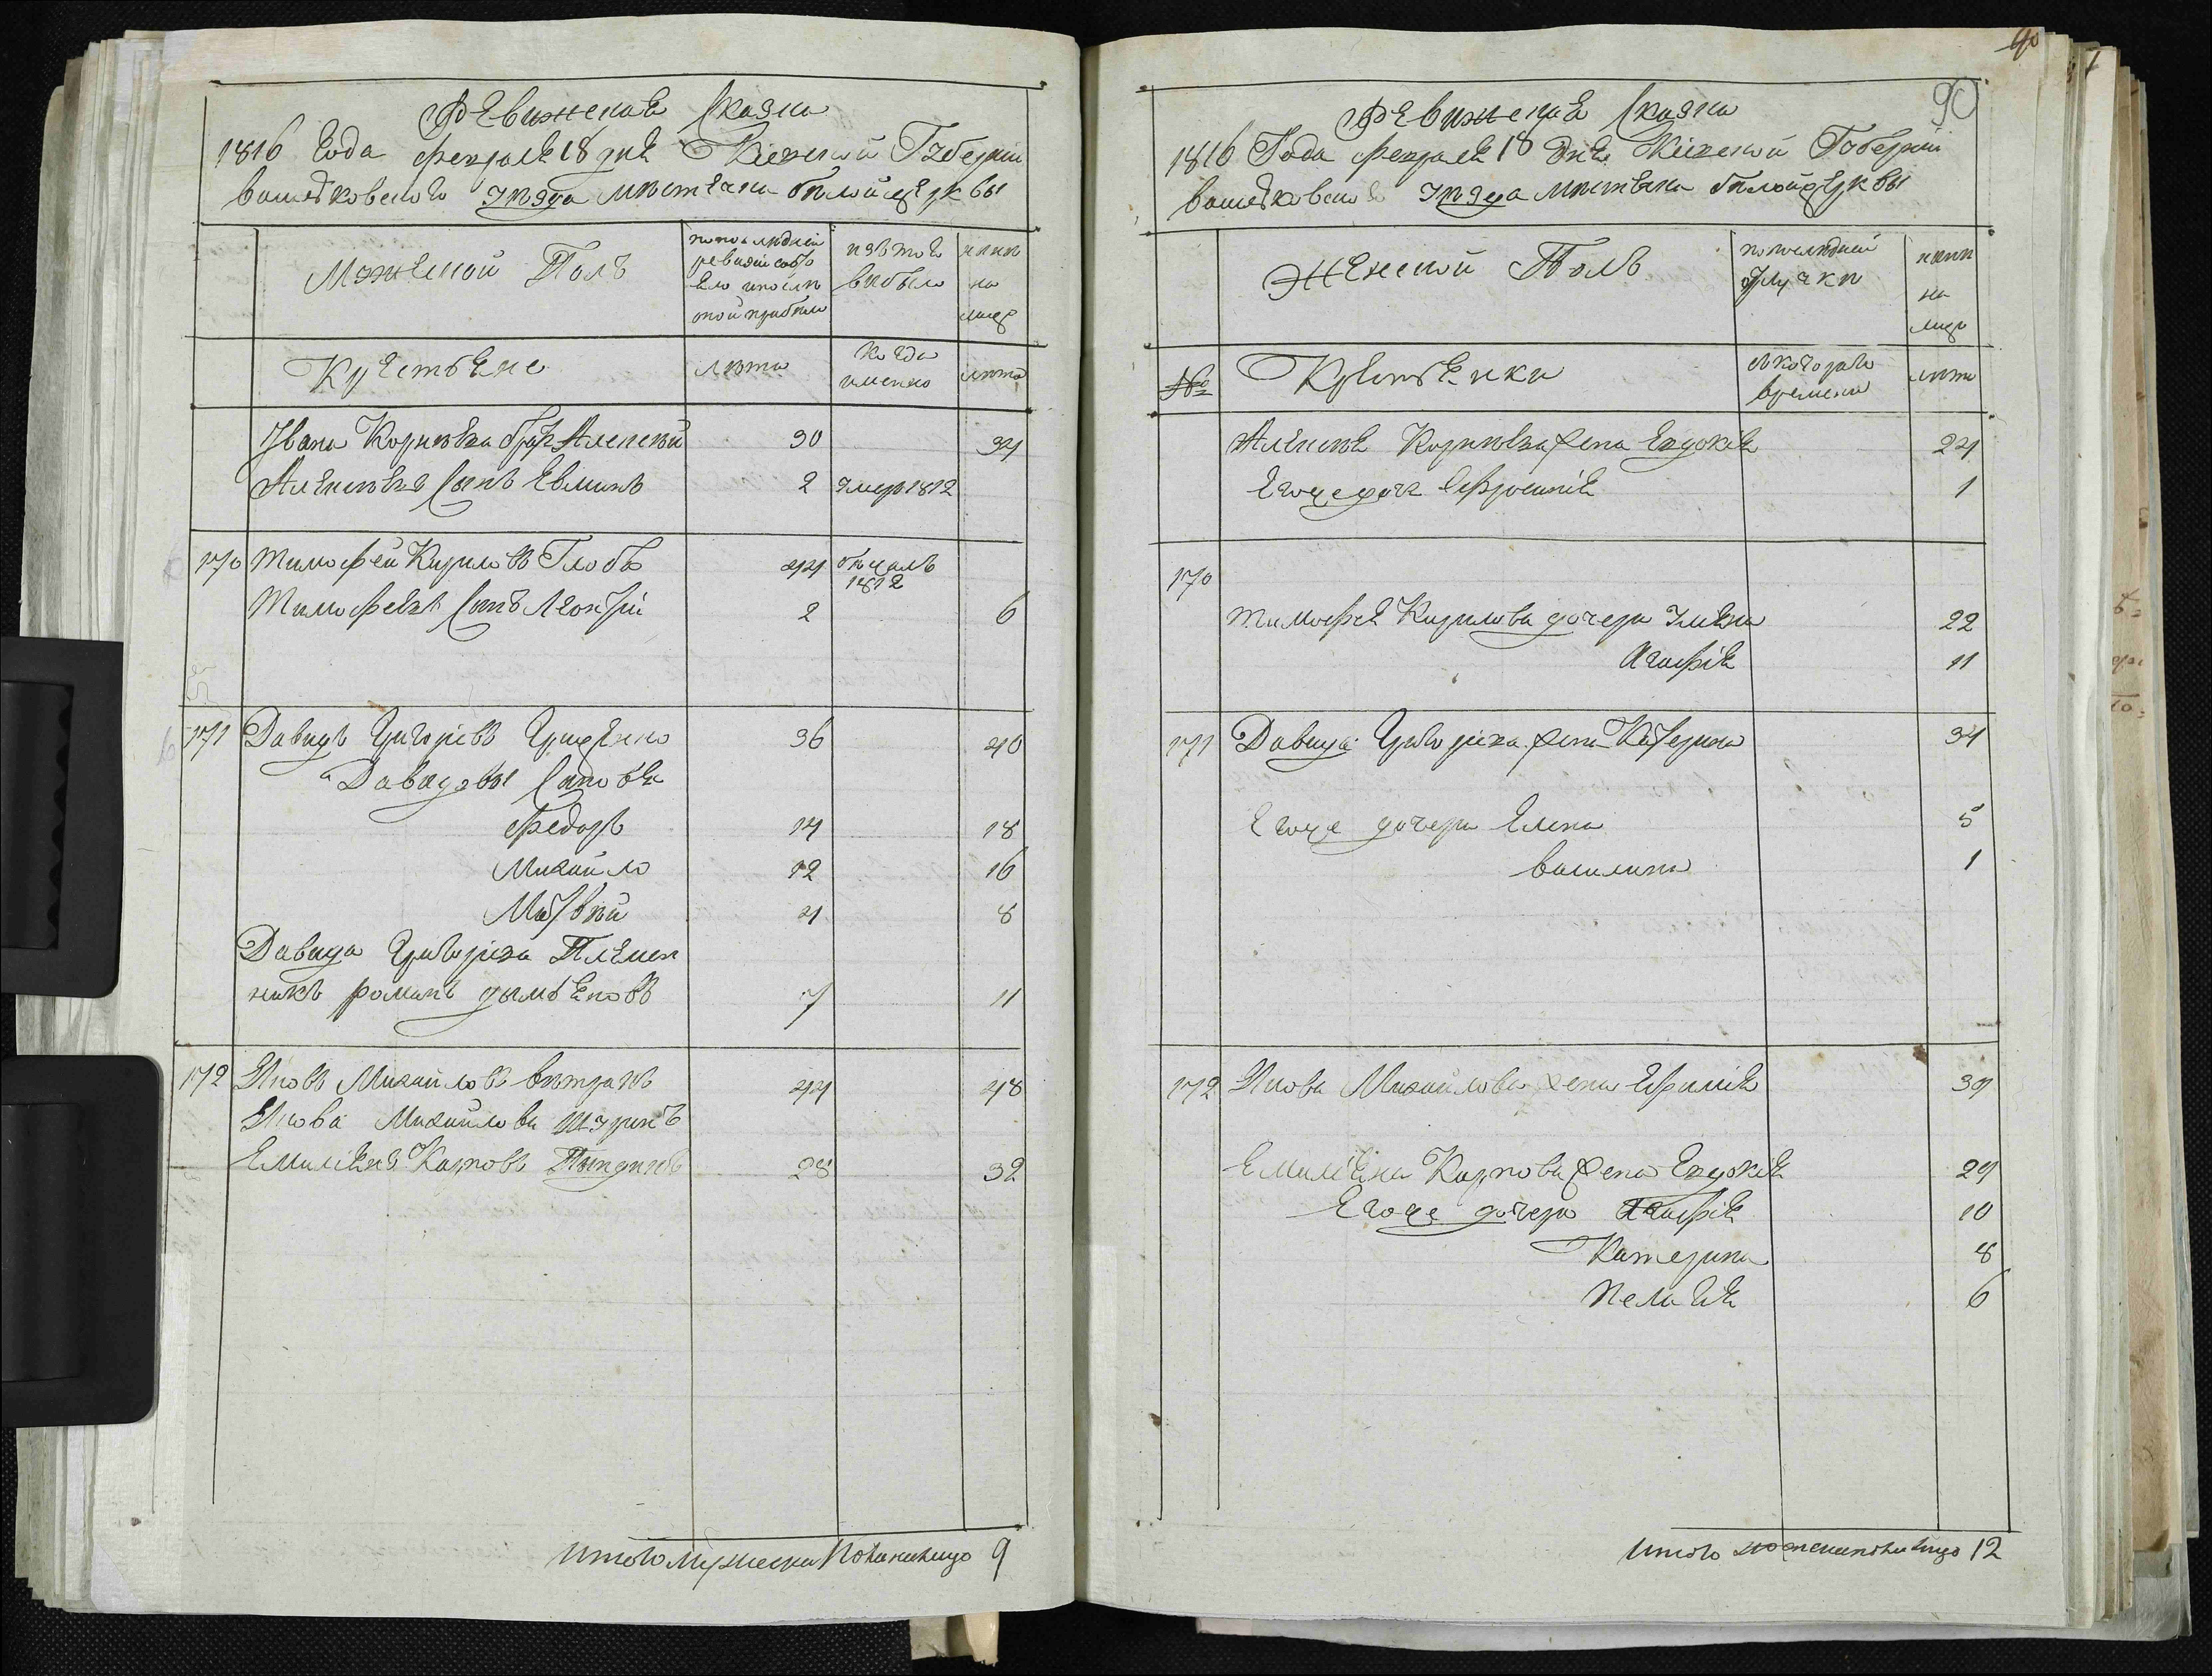 Ревижская Сказка
1816 Года февраля 18 дня Киевской Губернии
васильковского уезда мѣстечка белой церкви
Мужеской Полъ
по последней
ревизии состо
яло и после
оной прибыло
изъ того
выбыло
ныне
на
лицо
Крестьяне
лѣта
когда
именно
лѣта
Ивана Корнѣева братъ Алексей
30
34
Алексѣевъ Сынъ Евминъ
2
умеръ 1812
170
Тимофей Кириловъ Глоба
44
бѣжалъ
1812
Тимофеевъ Сынъ Леонтий
2
6
171
Давидъ Григориевъ Гриценко
36
40
Давидовы Сыновья
Федоръ
14
18
Михайло
12
16
Матвѣй
4
8
Давида Григориева Племен
никъ Романъ
7
11
172
Яковъ Михайловъ
44
48
Якова Михайлова шуринъ
Емилиянъ Карповъ
28
32
Итого мужеска пола налицо 9
40
90
Ревижская Сказка
1816 Года февраля 18 дня Киевской Губернии
васильковского уезда мѣстечка белой церкви
Женской Полъ
во временной
отлучке
ныне
на
лицо
№
Крестьянки
съ которого
времени
лѣта
Алексея Корнѣева жена Евдокия
24
Его же дочь Ефросиния
1
170
Тимофея Кирилова дочери Улияна
22
Агафия
11
171
Давида Григориева жена Катерина
34
Его же дочери Елена
5
василина
1
172
Якова Михайлова жена Ефимия
39
Емилияна Карпова жена Евдокия
29
Его же дочери Агафия
10
Катерина
8
Пелагия
6
Итого женска пола налицо 12